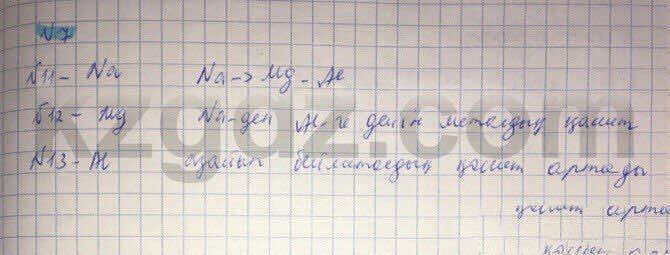 №7
№11 - Na Na -> Mg - Al
№12 - Mg Na-ден Al-ге дейін металдық қасиет
№13 - Al азайып бейметалдық қасиет артады
қасиет арта
қасиет
kzgdz.com